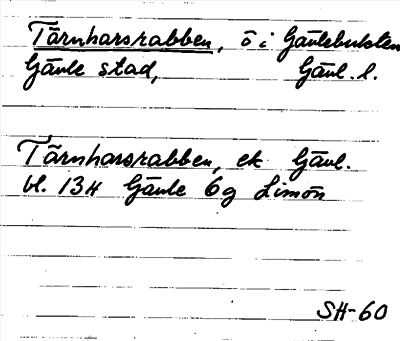 Tärnharsrabben, ö i Gävlebukten
Gävle stad, Gävl. l.
Tärnharsrabben, ek Gävl.
bl. 134 Gävle 6g Limön
SH-60